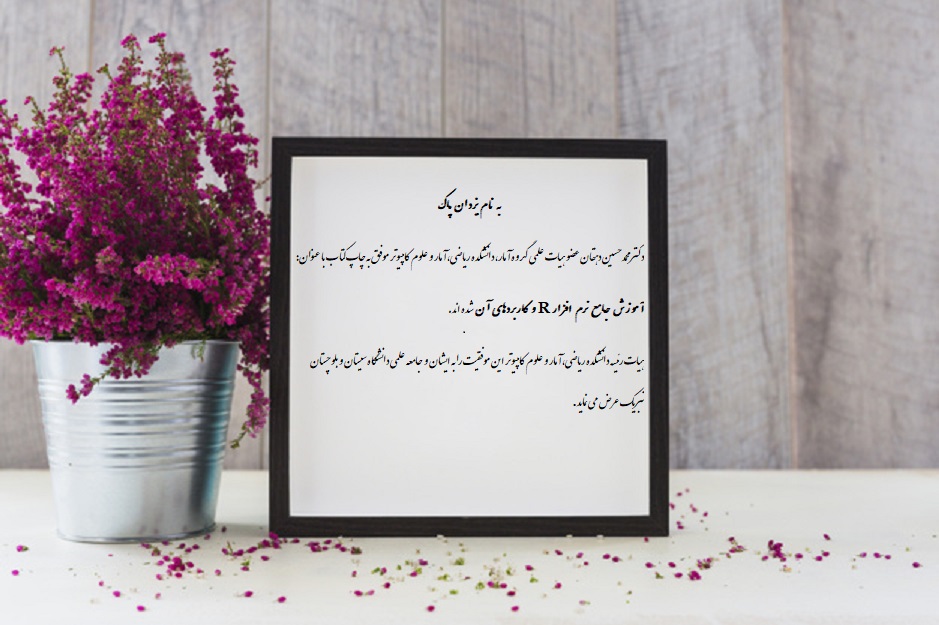 به نام یزدان پاک
دکتر محمد حسین دهقان عضو هیات علمی گروه آمار، دانشکده ریاضی، آمار و علوم کامپیوتر موفق به چاپ کتاب با عنوان:
آموزش جامع نرم افزار R و کاربردهای آن شده اند.
هیات رئیسه دانشکده ریاضی، آمار و علوم کامپیوتر این موفقیت را به ایشان و جامعه علمی دانشگاه سیستان و بلوچستان
تبریک عرض می نماید.